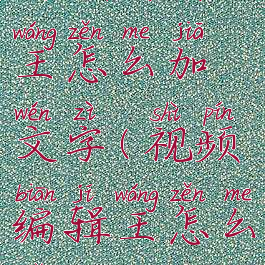 wáng zěn me jiā
王怎么加
wén zì shì pín
文字(视频
biān jí wáng zěn me
编辑王怎么